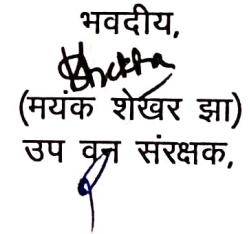 भवदीय,
(मयंक शेखर झा)
उप वन संरक्षक,